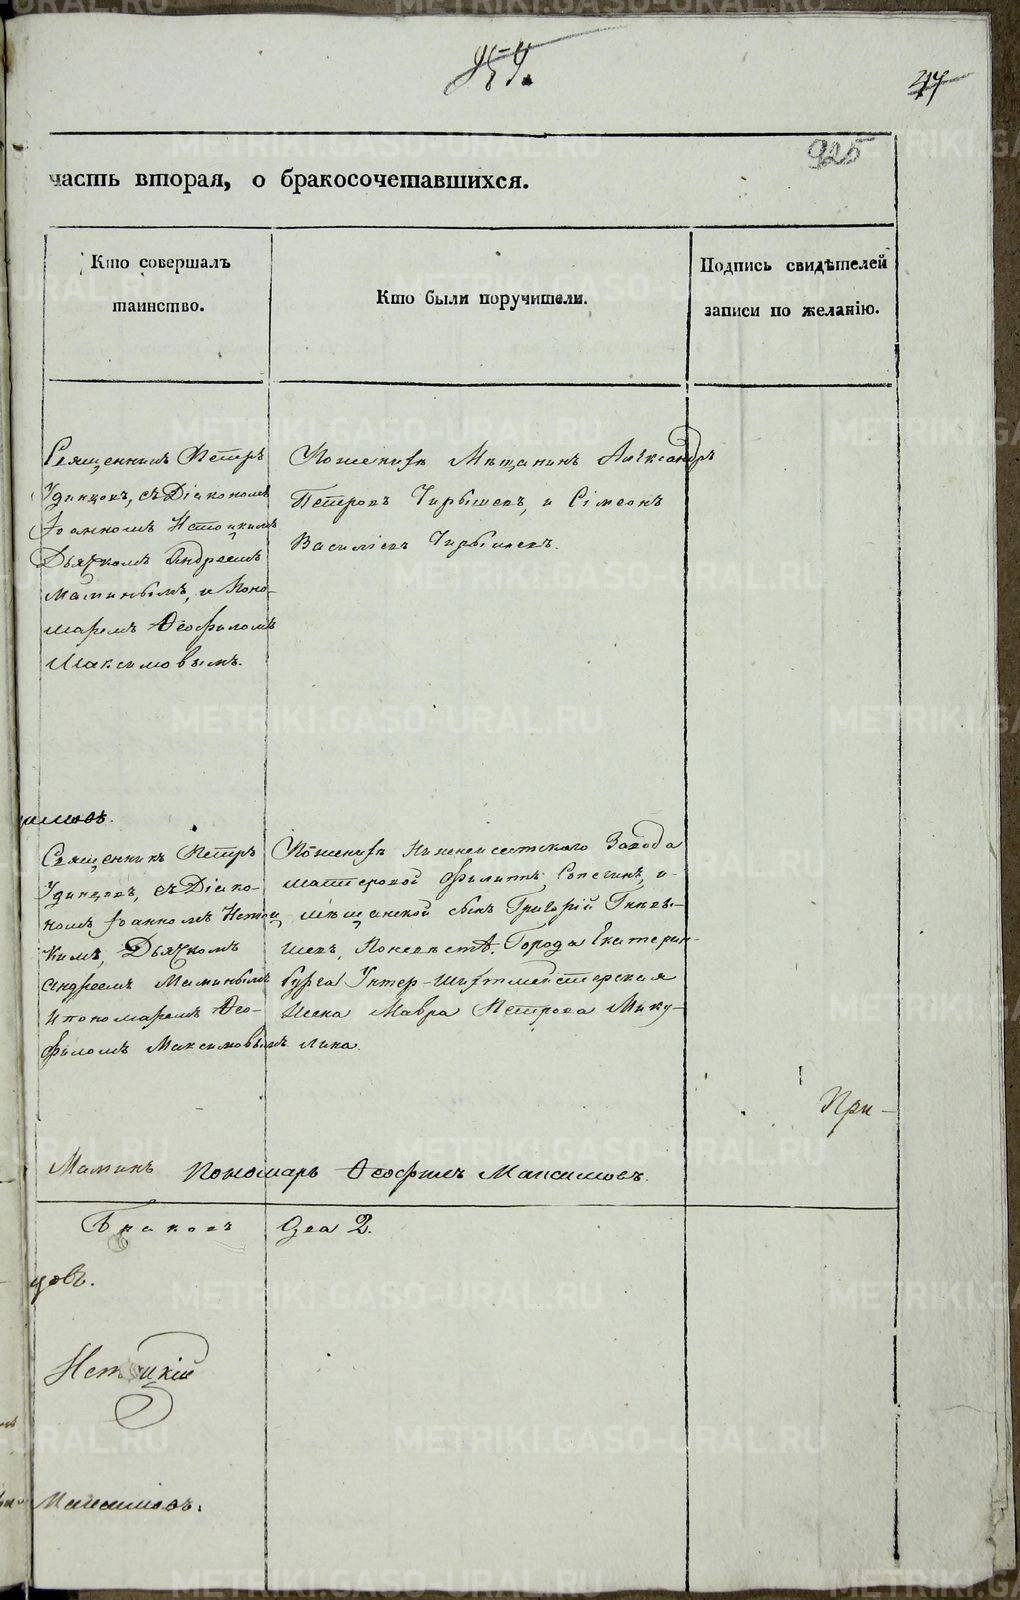 954.
925
часть вторая, о бракосочетавшихся.
Кто совершалъ
таинство.
Кто были поручители.
Подпись свидѣтелей
записи по желанію.
Священникъ Петръ
Удинцевъ, съ Діакономъ
Іоанномъ
Дьячкомъ Андреемъ
Маминымъ, и Поно-
маремъ Ѳеофиломъ
Максимовымъ.
По женихѣ Мѣщанинъ Александръ
Петровъ Чирьевъ, и Сімеонъ
Василіевъ
Священникъ Петръ
Удинцевъ, съ Діако-
номъ Іоанномъ
кимъ, Дьячкомъ
Андреемъ Маминымъ
и пономаремъ Ѳео-
филомъ Максимовымъ
По женихѣ Нижнеисетскаго Завода
мастеровой Филиппъ, и
мѣщанской сынъ Григорій
шевъ, По невѣстѣ. Города Екатерин-
бурга Унтер-шихтмейстерская
жена Мавра Петрова Мику-
лина.
При-
Маминъ Пономарь Ѳеофилъ Максимовъ.
Браковъ два 2.
цовъ.
Максимовъ.
METRIKI.GASO-URAL.RU